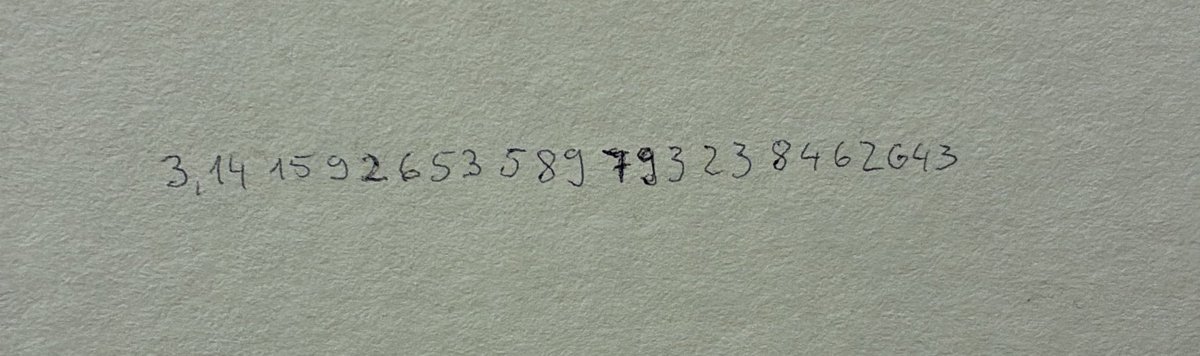 3,14 15 9 2 6 5 3 5 8 9 7 9 3 2 3 8 4 6 2 6 4 3